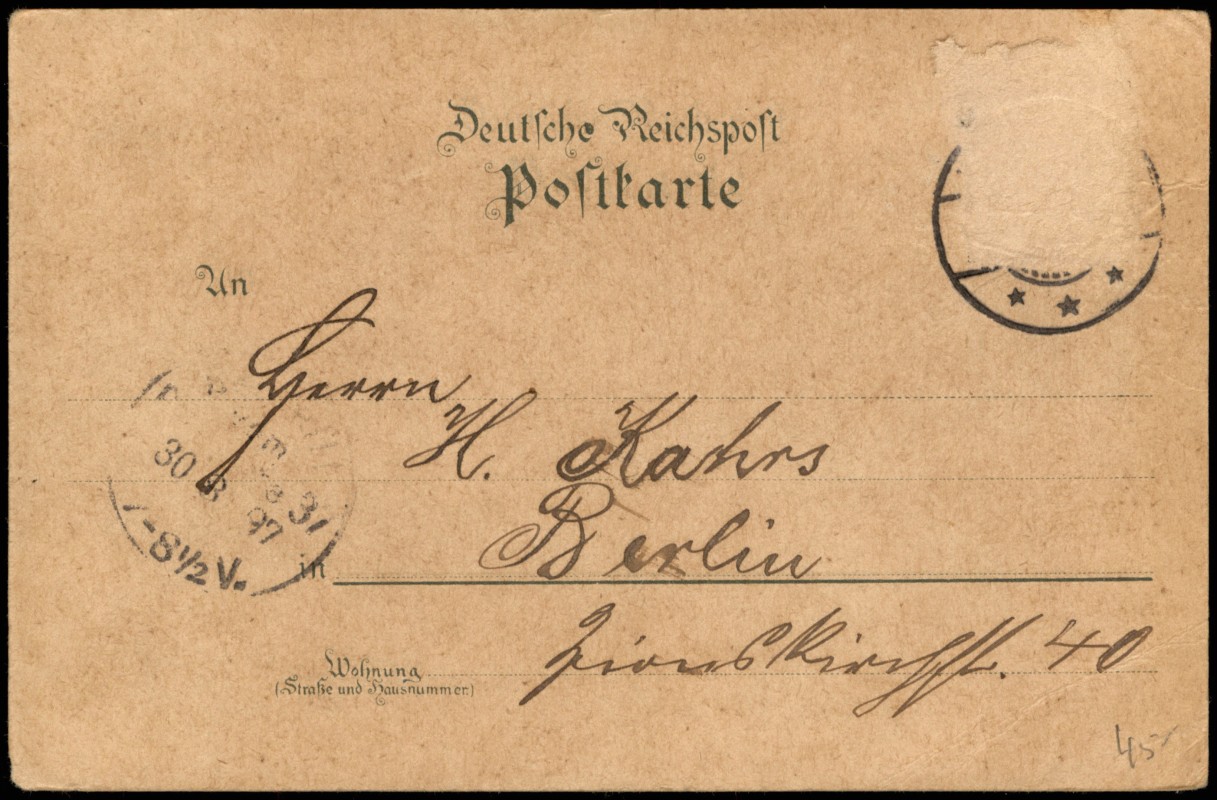 Deutsche Reichspost
Postkarte
An
Herrn
H. Kahrs
in Berlin
Wohnung
(Straße und Hausnummer)
Zionskirchst. 40
30 8 97
7-8½V.
45-